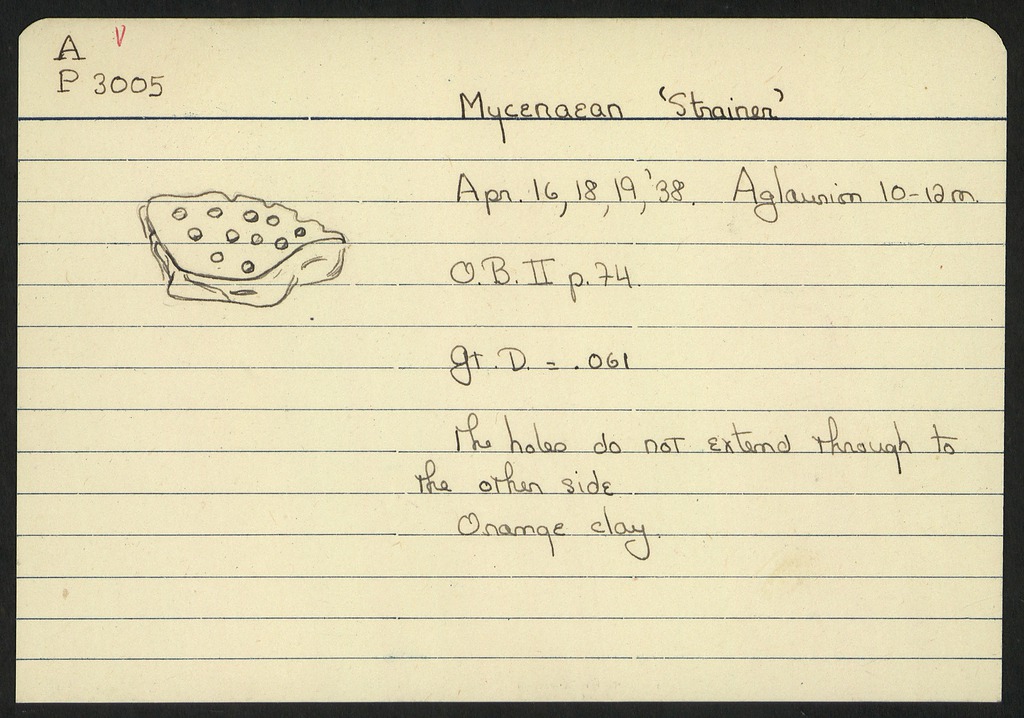 A V
P 3005
Mycenaean 'Strainer'
Apr. 16, 18, 19, '38. Aglaurion 10-12m.
O.B. II p. 74.
gt. D. = .061
The holes do not extend through to
the other side
Orange clay.